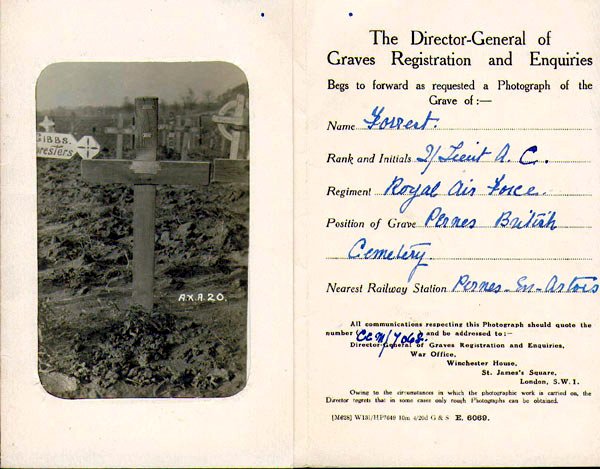 GIBBS.
resters
A X. A. 20.
The Director-General of
Graves Registration and Enquiries
Begs to forward as requested a Photograph of the
Grave of :—
Name Forrest.
Rank and Initials 2/Lieut A. C.
Regiment Royal Air Force.
Position of Grave Pernes British
Cemetery.
Nearest Railway Station Pernes-En-Artois
All communications respecting this Photograph should quote the
number ( CCM/7068. ) and be addressed to :—
Director-General of Graves Registration and Enquiries,
War Office,
Winchester House,
St. James's Square,
London, S.W. 1.
Owing to the circumstances in which the photographic work is carried on, the
Director regrets that in some cases only rough Photographs can be obtained.
[M628] W131/HP7649 10m 4/20d G & S E. 6069.